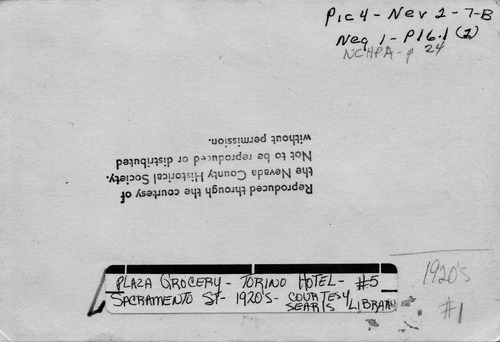 Pic 4 - Nev 2 - 7-B
Neg 1 - P16.1 (2)
NCHPA - p 24
Reproduced through the courtesy of
the Nevada County Historical Society.
Not to be reproduced or distributed
without permission.
PLAZA GROCERY - TORINO HOTEL - #5
SACRAMENTO ST - 1920'S - COURTESY
SEARLS LIBRARY
1920's
#1